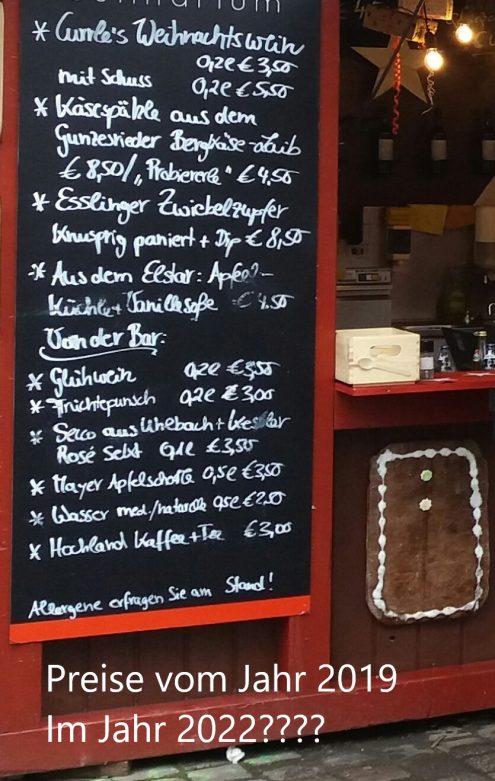 * Currle's Weihnachtswein
0,2l € 3,50
mit Schuss 0,2l € 5,50
* Kässpätzle aus dem
Gunzesrieder Bergkäse-Laib
€ 8,50/„Probiererle" € 4,50
* Esslinger Zwiebelzupfer
Knusprig paniert + Dip € 8,50
* Aus dem Elstar: Apfel-
Küchle + Vanillesoße € 4.50
Von der Bar:
* Glühwein 0,2l € 3,50
* Früchtepunsch 0,2l € 3,00
* Secco aus Uhlbach + Kessler
Rosé Sekt 0,1l € 3,50
* Mayer Apfelschorle 0,5l € 3,50
* Wasser med./naturelle 0,5l € 2.50
* Hochland Kaffee + Tee € 3,00
Allergene erfragen Sie am Stand!
Preise vom Jahr 2019
Im Jahr 2022????